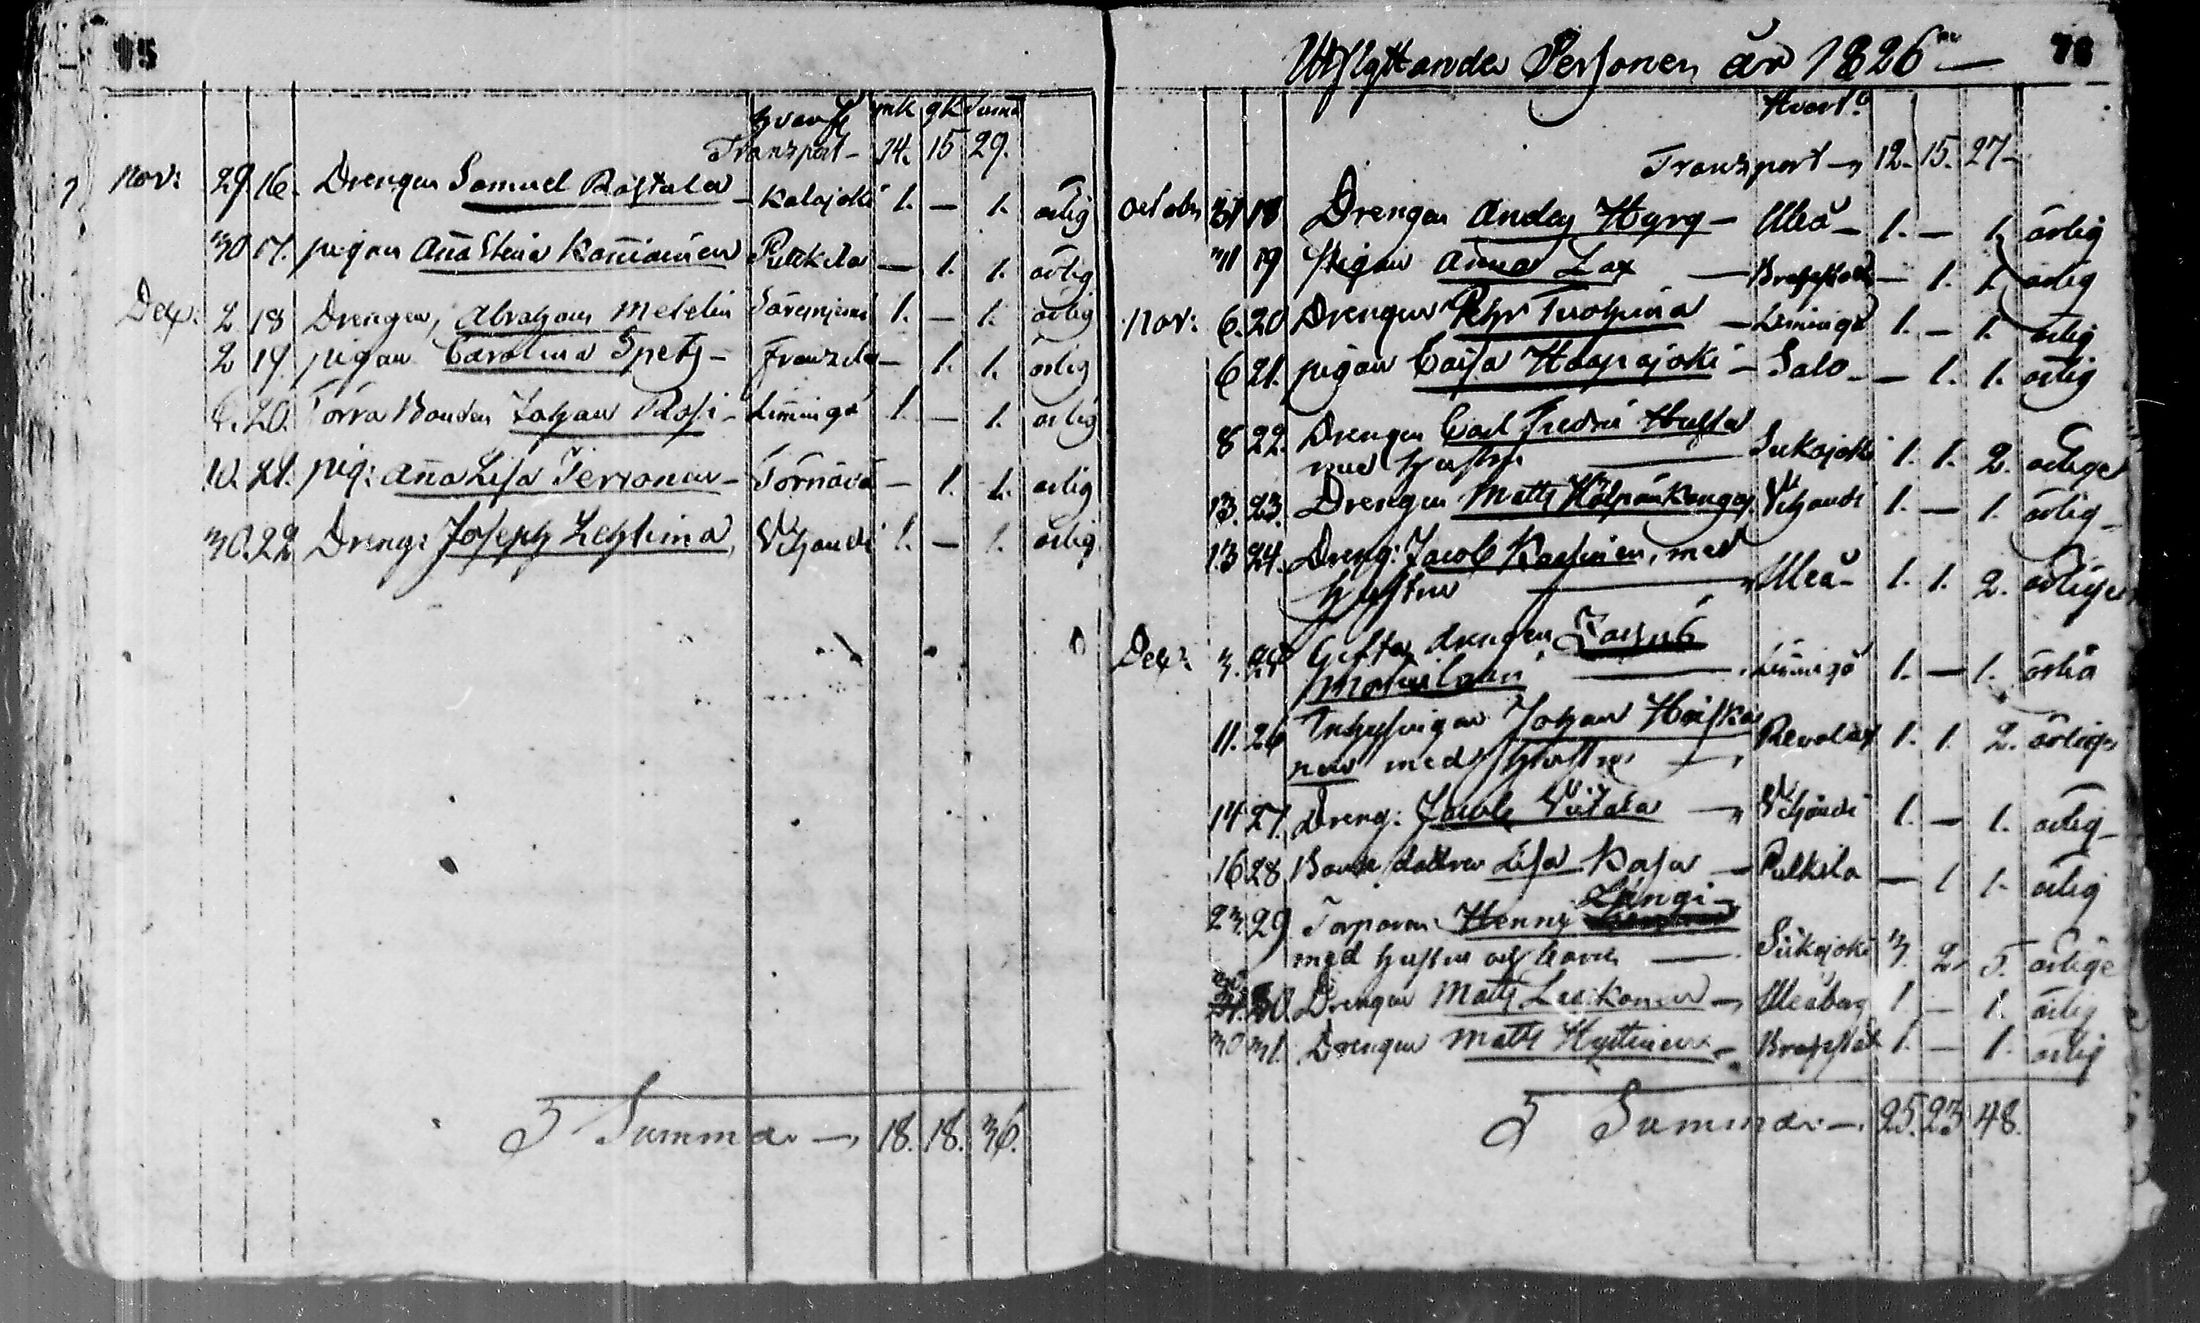 75
hvarifr mk qk Suma
Transport - 14. 15 29.
Nov: 29 16. Drengen Samuel Rastala - Kalajoki 1. - 1. ärlig
30 17. pigan Ana Stina Kaniainen Pulkkila - 1. 1. ärlig
Dex: 2 18 Drengen, Abraham Metelin 1. - 1. ärlig
2 19. pigan Carolina Spets - Frantsila - 1. 1. ärlig
6. 20. Torra Bonden Johan Rosi - Limingo 1. - 1. ärlig
10. 21. pig: Ana Lisa Tervonen - Törnävä - 1. 1. ärlig
30. 22. Dreng: Joseph Lehtima, Vihandi 1. - 1. ärlig
Summa - 18. 18. 36.
Utflyttande Personer år 1826 - 76
Hvart
Transport - 12. 15. 27 -
October 31 18 Drengen Anders Hyry - Uleå - 1. - 1. ärlig
31 19 Pigan Anna Lax - Brahestad - 1. 1. ärlig
Nov: 6. 20 Drengen Pehr Tuohina - Limingo 1. - 1. ärlig
6 21. pigan Caisa Haapajoki - Salo - - 1. 1. ärlig
8 22. Drengen Carl Fredric
med hustru - Siikajoki 1. 1. 2. ärlige
13. 23. Drengen Matts Hälpänkangas. Vihandi 1. - 1. ärlig -
13 24. Dreng: Jacob Kaskinen, med
hustru - Uleå - 1. 1. 2. ärlige
Dex: 3. 25 Gifta drengen Zachris
- Limingo 1. - 1. ärlig
11. 26 Inhysingen Johan Heiska
nen med hustru - Revolax 1. 1. 2. ärlige
14 27. Dreng: Jacob Viitala - Vihandi 1. - 1. ärlig -
16 28 Bonde dottren Lisa Kasa - Pulkila - 1 1. ärlig
Längi -
23. 29 Torparen Henric
med hustru och barn - Siikajoki 3. 2. 5. ärlige
30 Drengen Matts Luikonen - Uleåborg 1. - 1. ärlig
30 31. Drengen Matts Hyttinen - Brahestad 1. - 1. ärlig
Summa - 25. 23 48.